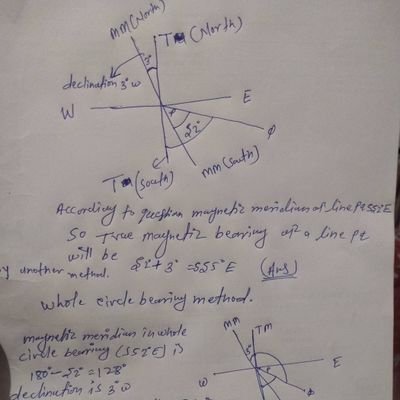 MM (North)
TM (North)
3°
declination 3° W
W
E
P
52°
Q
TM (South)
MM (South)
According to question magnetic meridian of line PQ S52°E
So True magnetic bearing of a line PQ
will be
by another method. 52° + 3° = S55°E (Ans)
Whole circle bearing method.
magnetic meridian in whole
circle bearing (S52°E) is
180° - 52° = 128°
declination is 3° W
MM
TM
3°
W
E
P
Q